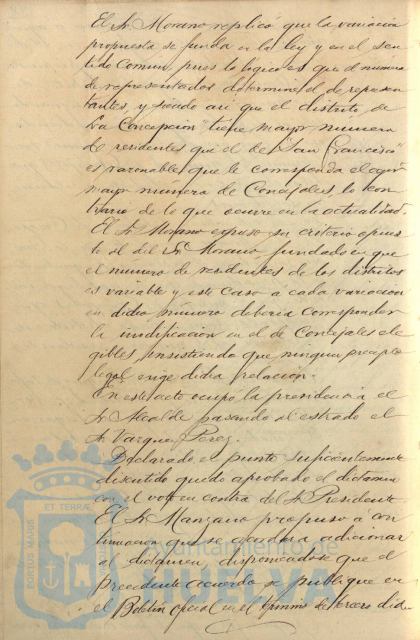 El Sr. Morano replicó que la variación
propuesta se funda en la ley y en el sen-
tido comun, pues lo logico es que el numero
de representados determine el de represen
tantes, y siendo asi que el distrito de
"La Concepcion" tiene mayor numero
de residentes que el de "San Francisco"
es razonable que le corresponda el
mayor numero de Concejales, lo con
trario de lo que ocurre en la actualidad.
El Sr. Morano expuso su criterio opues
to al del Sr. Morano, fundado en que
el número de residentes de los distritos
es variable y en este caso a cada variacion
en dicho número deberia corresponder
la modificacion en el de Concejales ele
gibles, insistiendo que ningun precepto
legal exige dicha relación.
En este acto ocupó la presidencia el
Sr. Alcalde pasando al estrado el
Sr. Vazquez Perez.
Declarado el punto suficientemente
discutido quedo aprobado el dictamen
con el voto en contra del Sr. Presidente
El Sr. Manzano propuso á con
tinuacion que se acordara adicionar
al dictamen, disponiendose que el
precedente acuerdo se publique en
el Boletin oficial en el termino de tercero dia
Ayuntamiento de
HUELVA
PORTUS MARIS
ET TERRAE
CUSTODIA